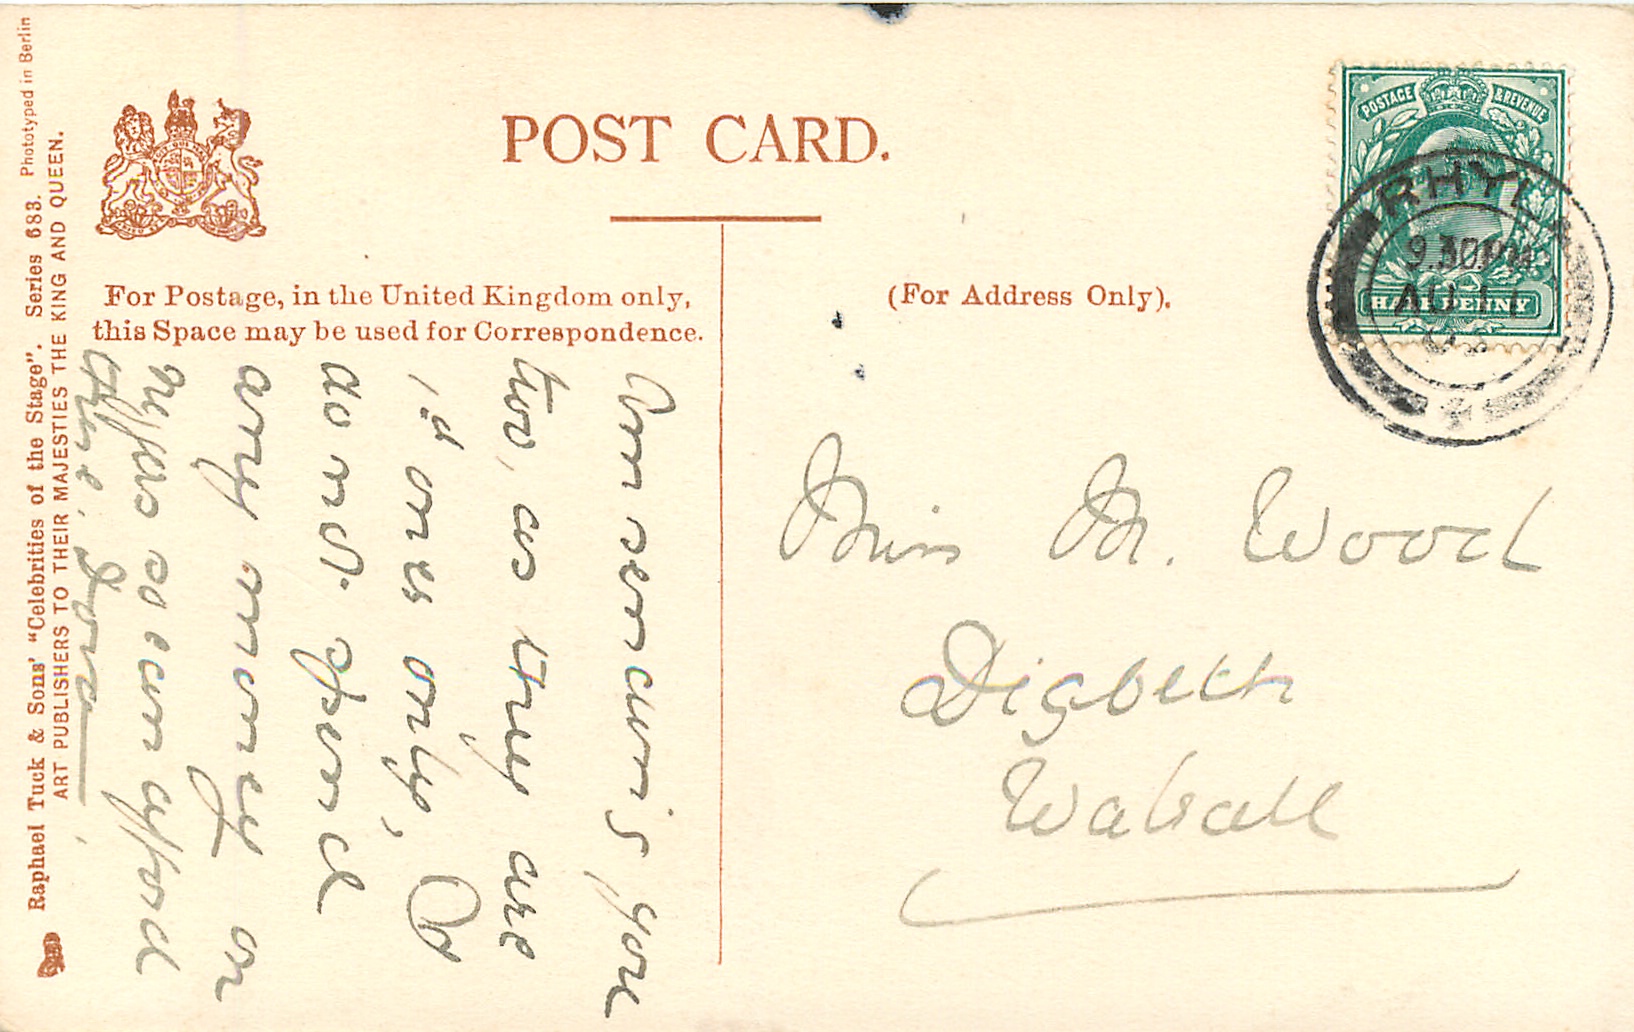 POST CARD.
For Postage, in the United Kingdom only,
this Space may be used for Correspondence.
(For Address Only).
Raphael Tuck & Sons' "Celebrities of the Stage". Series 683. Phototyped in Berlin
ART PUBLISHERS TO THEIR MAJESTIES THE KING AND QUEEN.
POSTAGE & REVENUE
HALFPENNY
RHYL
9.30PM
AU 11
Am sending you
two, as they are
1d ones only, I
do not spend
any money on
myself so can afford
Dora
Miss M. Wood
Digbeth
Walsall